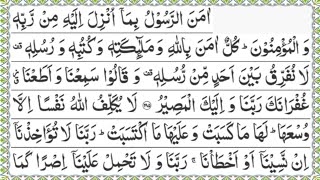 اٰمَنَ الرَّسُوْلُ بِمَاۤ اُنْزِلَ اِلَیْهِ مِنْ رَّبِّهٖ
وَ الْمُؤْمِنُوْنَ ؕ كُلٌّ اٰمَنَ بِاللّٰهِ وَ مَلٰٓىِٕكَتِهٖ وَ كُتُبِهٖ وَ رُسُلِهٖ ۫
لَا نُفَرِّقُ بَیْنَ اَحَدٍ مِّنْ رُّسُلِهٖ ۫ وَ قَالُوْا سَمِعْنَا وَ اَطَعْنَا ۗ
غُفْرَانَكَ رَبَّنَا وَ اِلَیْكَ الْمَصِیْرُ ﴿۲۸۵﴾ لَا یُكَلِّفُ اللّٰهُ نَفْسًا اِلَّا
وُسْعَهَا ؕ لَهَا مَا كَسَبَتْ وَ عَلَیْهَا مَا اكْتَسَبَتْ ؕ رَبَّنَا لَا تُؤَاخِذْنَاۤ
اِنْ نَّسِیْنَاۤ اَوْ اَخْطَاْنَا ۚ رَبَّنَا وَ لَا تَحْمِلْ عَلَیْنَاۤ اِصْرًا كَمَا